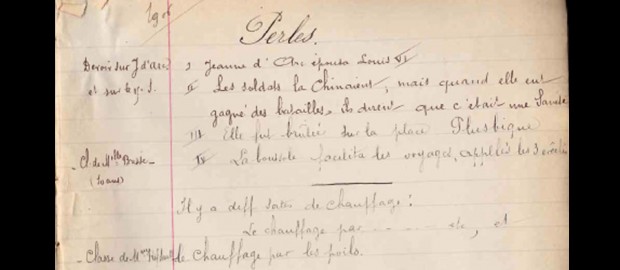 Perles.
Devoir sur J d'Arc
I Jeanne d'Arc épousa Louis VI
et sur le
II Les soldats la Chinaient, mais quand elle eut
gagné des batailles, ils dirent que c'était une
III Elle fut brûlée sur la place Plusbique
Cl. de Mlle
IV La boussole facilita les voyages, appelés les 3
(10 ans)
Il y a diff sortes de chauffage :
Le chauffage par
Classe de Mme
de chauffage par les poils.